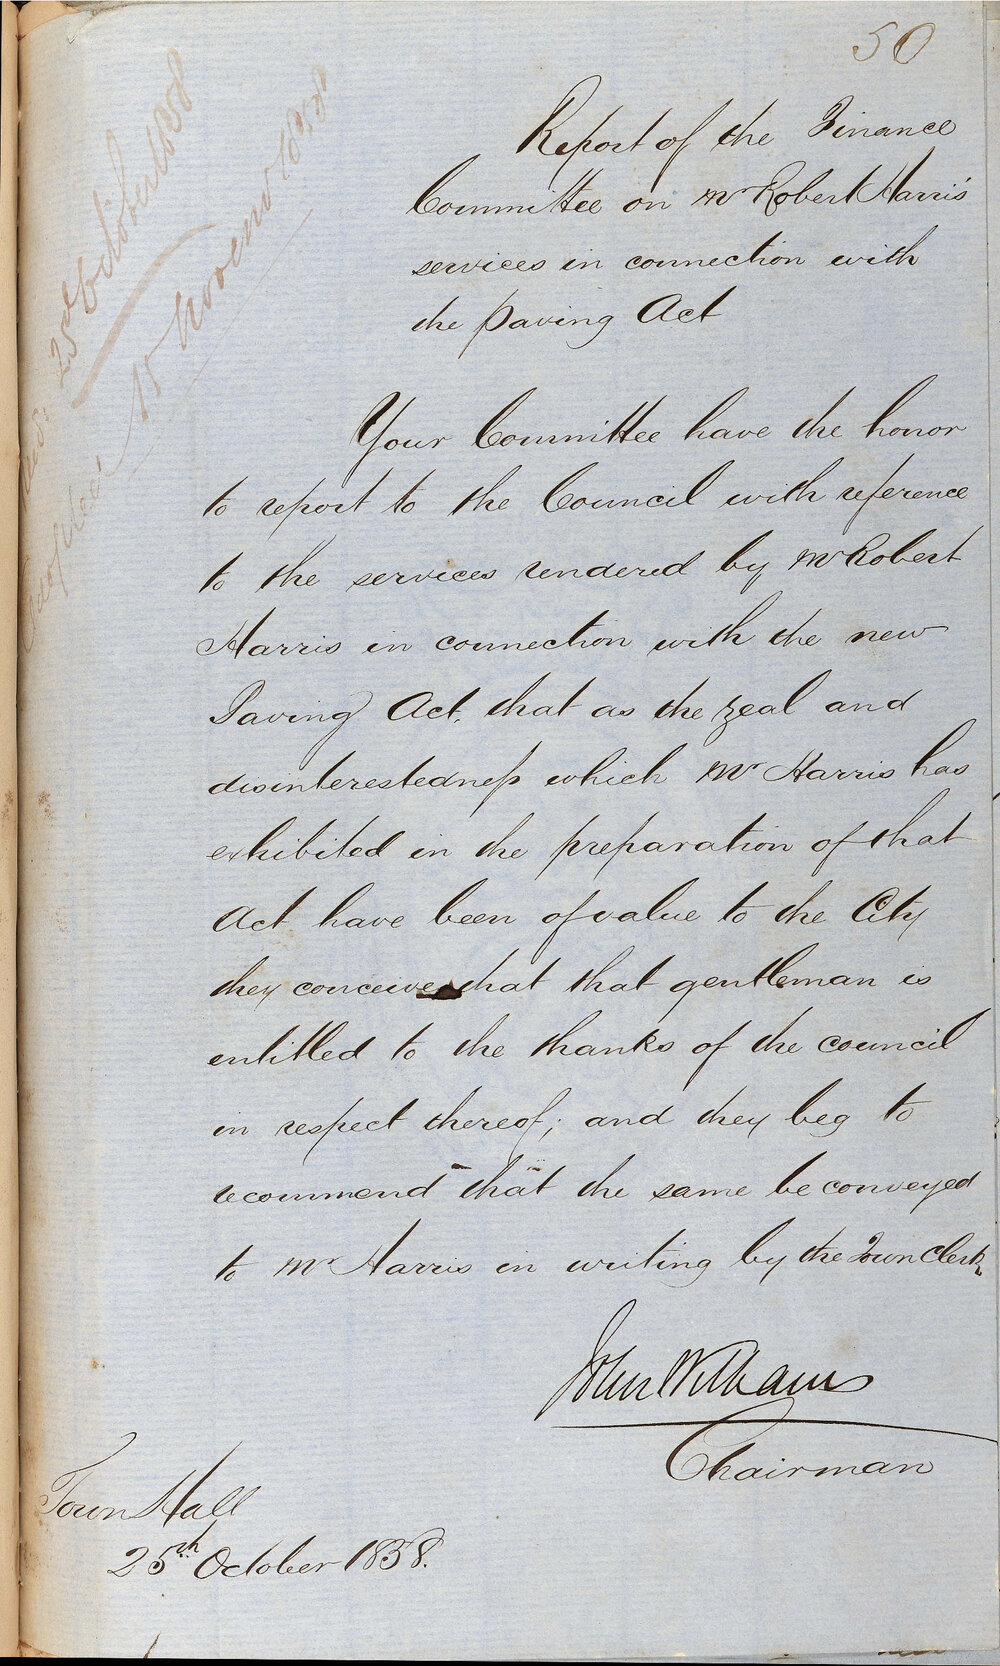 50
Report of the Finance
Committee on Mr Robert Harris'
services in connection with
the Paving Act
Your Committee have the honor
to report to the Council with reference
to the services rendered by Mr Robert
Harris in connection with the new
Paving Act, that as the zeal and
disinterestedness which Mr Harris has
exhibited in the preparation of that
Act have been of value to the City
they conceive that that gentleman is
entitled to the thanks of the council
in respect thereof; and they beg to
recommend that the same be conveyed
to Mr Harris in writing by the Town Clerk
John Williams
Chairman
Town Hall
25th October 1858.
25th October 1858
15 Novemr 1858